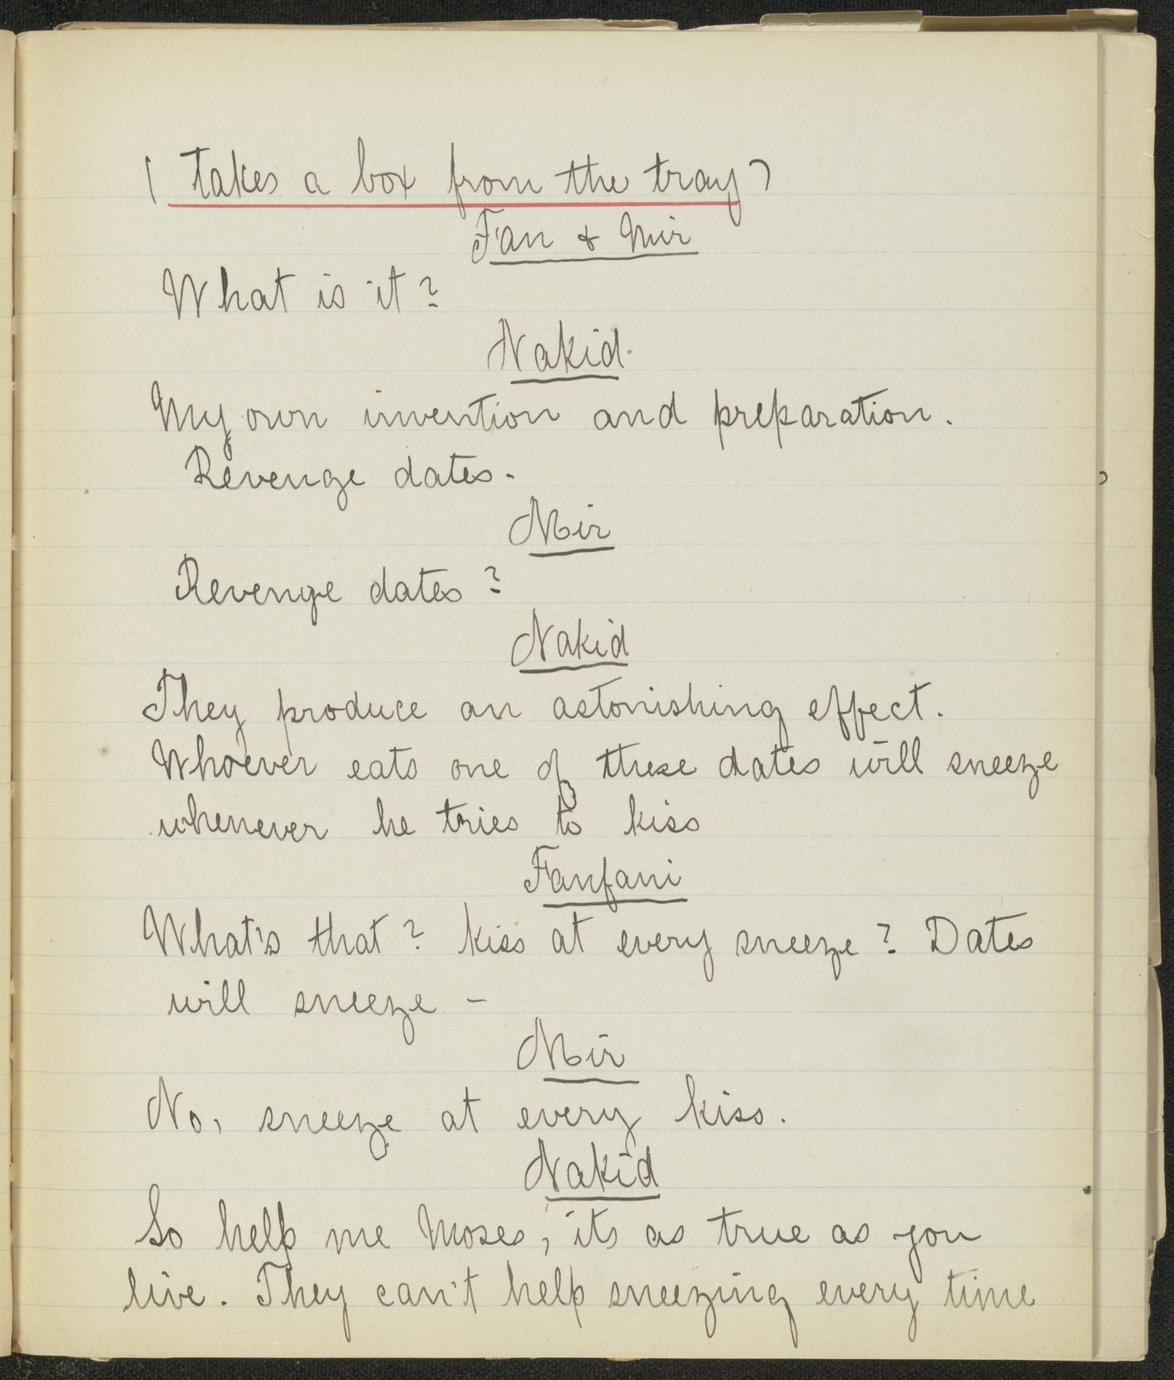 ( takes a box from the tray )
Fan & Mir
What is it?
Nakid.
My own invention and preparation.
Revenge dates.
Mir
Revenge dates?
Nakid
They produce an astonishing effect.
Whoever eats one of these dates will sneeze
whenever he tries to kiss
Fanfani
What's that? kiss at every sneeze? Dates
will sneeze –
Mir
No, sneeze at every kiss.
Nakid
So help me Moses, its as true as you
live. They can't help sneezing every time